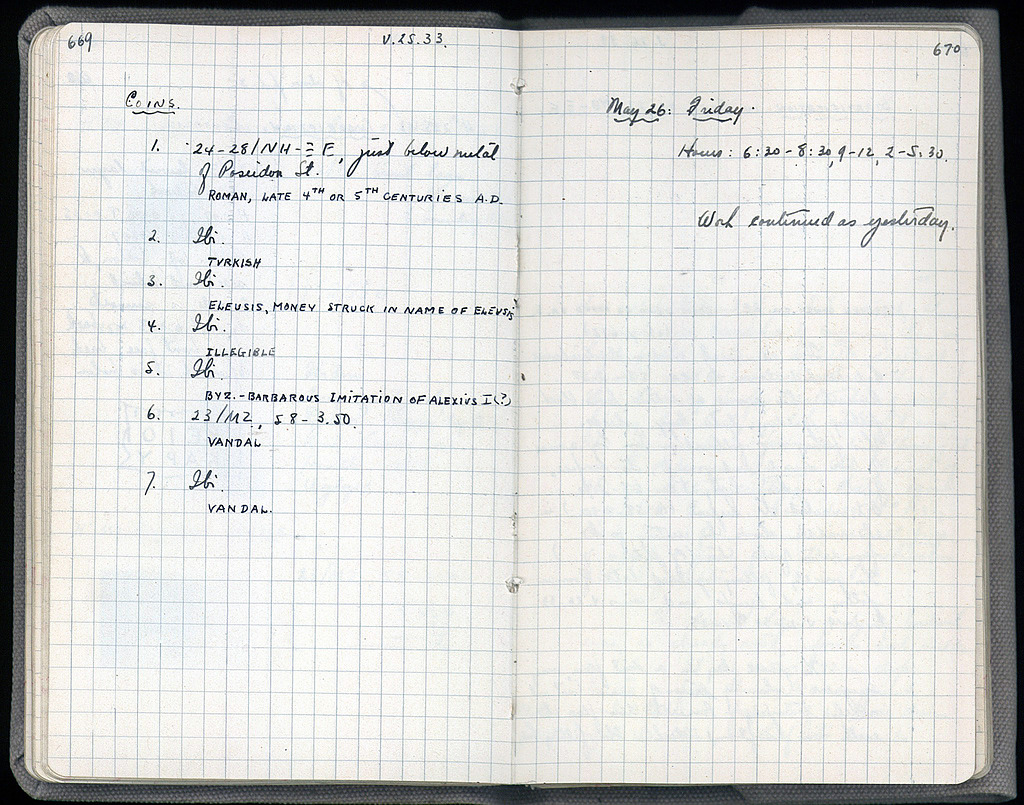 669
V.25.33.
COINS.
1. 24-28/ΝΗ- E, just below metal
of Poseidon St.
ROMAN, LATE 4TH OR 5TH CENTURIES A.D.
2. Ibi.
TVRKISH
3. Ibi.
ELEUSIS, MONEY STRUCK IN NAME OF ELEUSIS
4. Ibi.
ILLEGIBLE
5. Ibi.
BYZ.-BARBAROUS IMITATION OF ALEXIUS I(?)
6. 23/ , 58-3.50.
VANDAL
7. Ibi.
VANDAL.
670
May 26: Friday.
Hours: 6:30-8:30, 9-12, 2-5:30.
Work continued as yesterday.